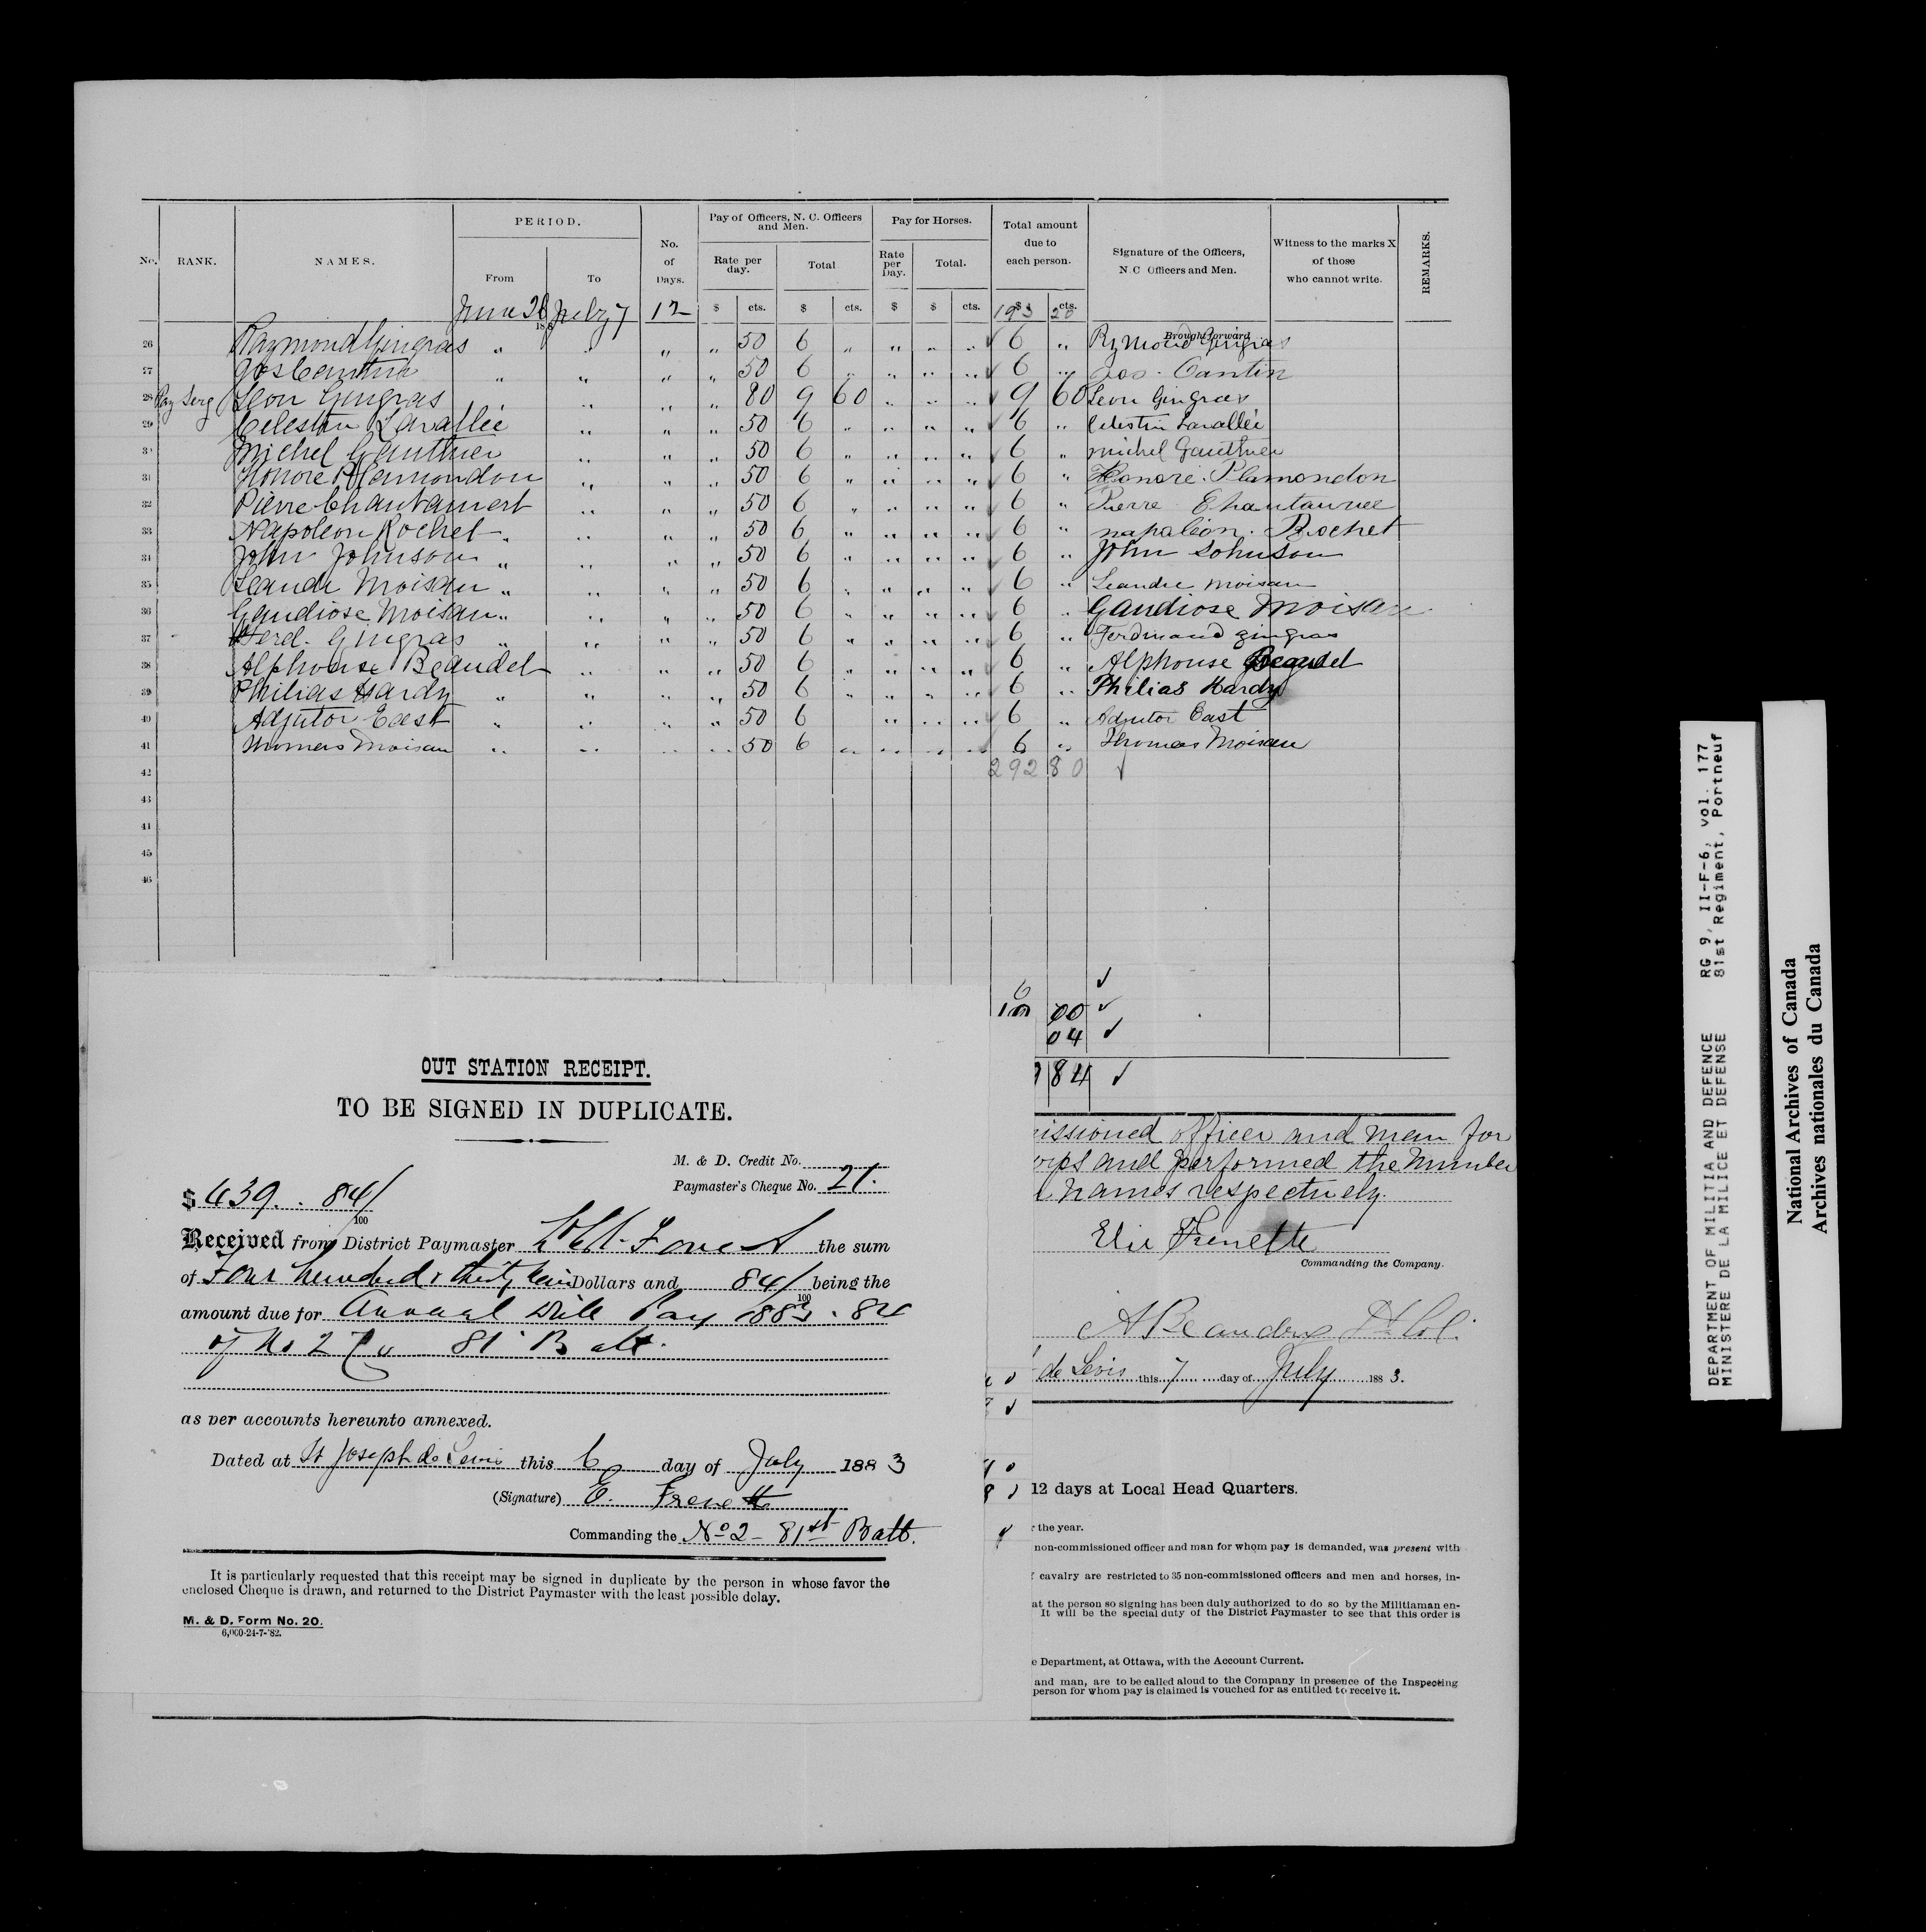 PERIOD.
Pay of Officers, N. C. Officers and Men.
Pay for Horses.
Total amount due to each person.
No. RANK. NAMES. From To No. of Days. Rate per day. Total Rate per Day. Total. Signature of the Officers, N. C Officers and Men. Witness to the marks X of those who cannot write. REMARKS.
$ cts. $ cts. $ $ cts. $ cts.
June 26 July 7 12 193 20
188
Brought forward
26 Raymond Gingras " " " " 50 6 " " " " 6 " Rymond Gingras
27 Jos Cantin " " " " 50 6 " " " " 6 " Jos. Cantin
28 Pay Serg Leon Gingras " " " " 80 9 60 " " " 9 60 Leon Gingras
29 Celestin Lavallée " " " 50 6 " " " " 6 " Celestin Lavallée
30 Michel Gauthier " " " 50 6 " " " " 6 " michel Gauthier
31 Honore Plamondon " " " 50 6 " " " " 6 " Honoré. Plamondon
32 Pierre " " " 50 6 " " " " 6 " Pierre
33 Napoleon Rochet " " " " 50 6 " " " " 6 " napaléon. Rochet
34 John Johnson " " " " 50 6 " " " " 6 " John Johnson
35 Leandre Moisan " " " " 50 6 " " " " 6 " Leandre Moisan
36 Gaudiose Moisan " " " " 50 6 " " " " 6 " Gaudiose Moisan
37 Ferd. Gingras " " " " 50 6 " " " " 6 " Ferdinand gingras
38 Alphonse Beaudet " " " 50 6 " " " " 6 " Alphonse Beaudet
39 Philias Hardy " " " " 50 6 " " " " 6 " Philias Hardy
40 Adjutor East " " " " 50 6 " " " 6 " Adjutor East
41 Thomas Moisan " " " " 50 6 " " " " 6 " Thomas Moisan
42 292 80 ✓
43
44
45
46
✓
00 ✓
04 ✓
84 ✓
issioned officer and man for
orps and performed the number
names respectively.
Elie Frenette
Commanding the Company.
A Beaudry Lt Col.
de Levis this 7 day of July 1883.
12 days at Local Head Quarters.
the year.
non-commissioned officer and man for whom pay is demanded, was present with
cavalry are restricted to 35 non-commissioned officers and men and horses, in-
at the person so signing has been duly authorized to do so by the Militiaman en-
It will be the special duty of the District Paymaster to see that this order is
e Department, at Ottawa, with the Account Current.
and man, are to be called aloud to the Company in presence of the Inspecting
person for whom pay is claimed is vouched for as entitled to receive it.
OUT STATION RECEIPT.
TO BE SIGNED IN DUPLICATE.
M. & D. Credit No.
Paymaster's Cheque No. 21.
$ 439.. 84/100
Received from District Paymaster Forrest the sum
of Four hundred & thirty nine Dollars and 84/100 being the
amount due for Annual Drill Pay 1883.84
of No 2 Cy 81 Batt.
as per accounts hereunto annexed.
Dated at St Joseph de Levis this 6 day of July 1883
(Signature) E. Frenette
Commanding the No 2 - 81st Batt.
It is particularly requested that this receipt may be signed in duplicate by the person in whose favor the
enclosed Cheque is drawn, and returned to the District Paymaster with the least possible delay.
M. & D. Form No. 20.
6,000-24-7-'82.
DEPARTMENT OF MILITIA AND DEFENCE RG 9, II-F-6, vol. 177
MINISTERE DE LA MILICE ET DEFENSE 81st Regiment, Portneuf
National Archives of Canada
Archives nationales du Canada